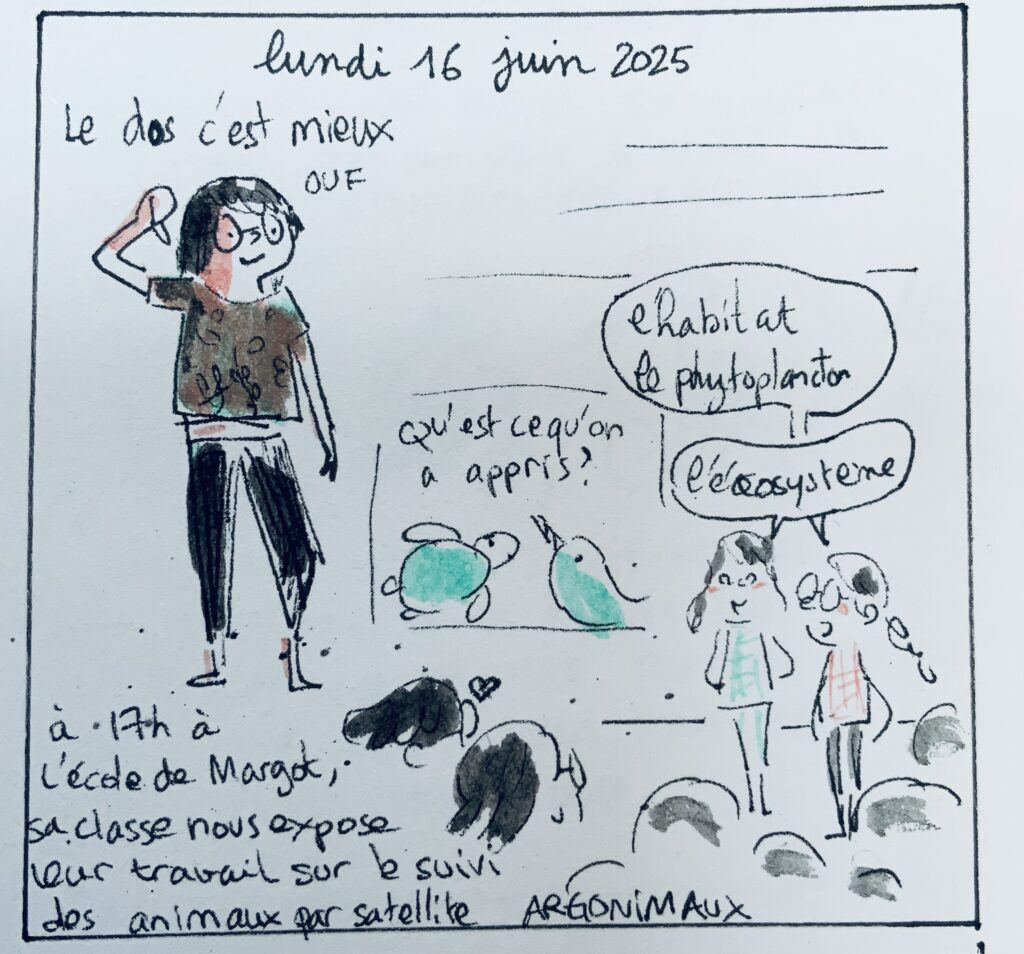 lundi 16 juin 2025
Le dos c'est mieux
OUF
l'habitat
le phytoplancton
qu'est cequ'on
a appris?
l'écosysteme
à 17h à
l'école de Margot,
sa classe nous expose
leur travail sur le suivi
des animaux par satellite
ARGONIMAUX